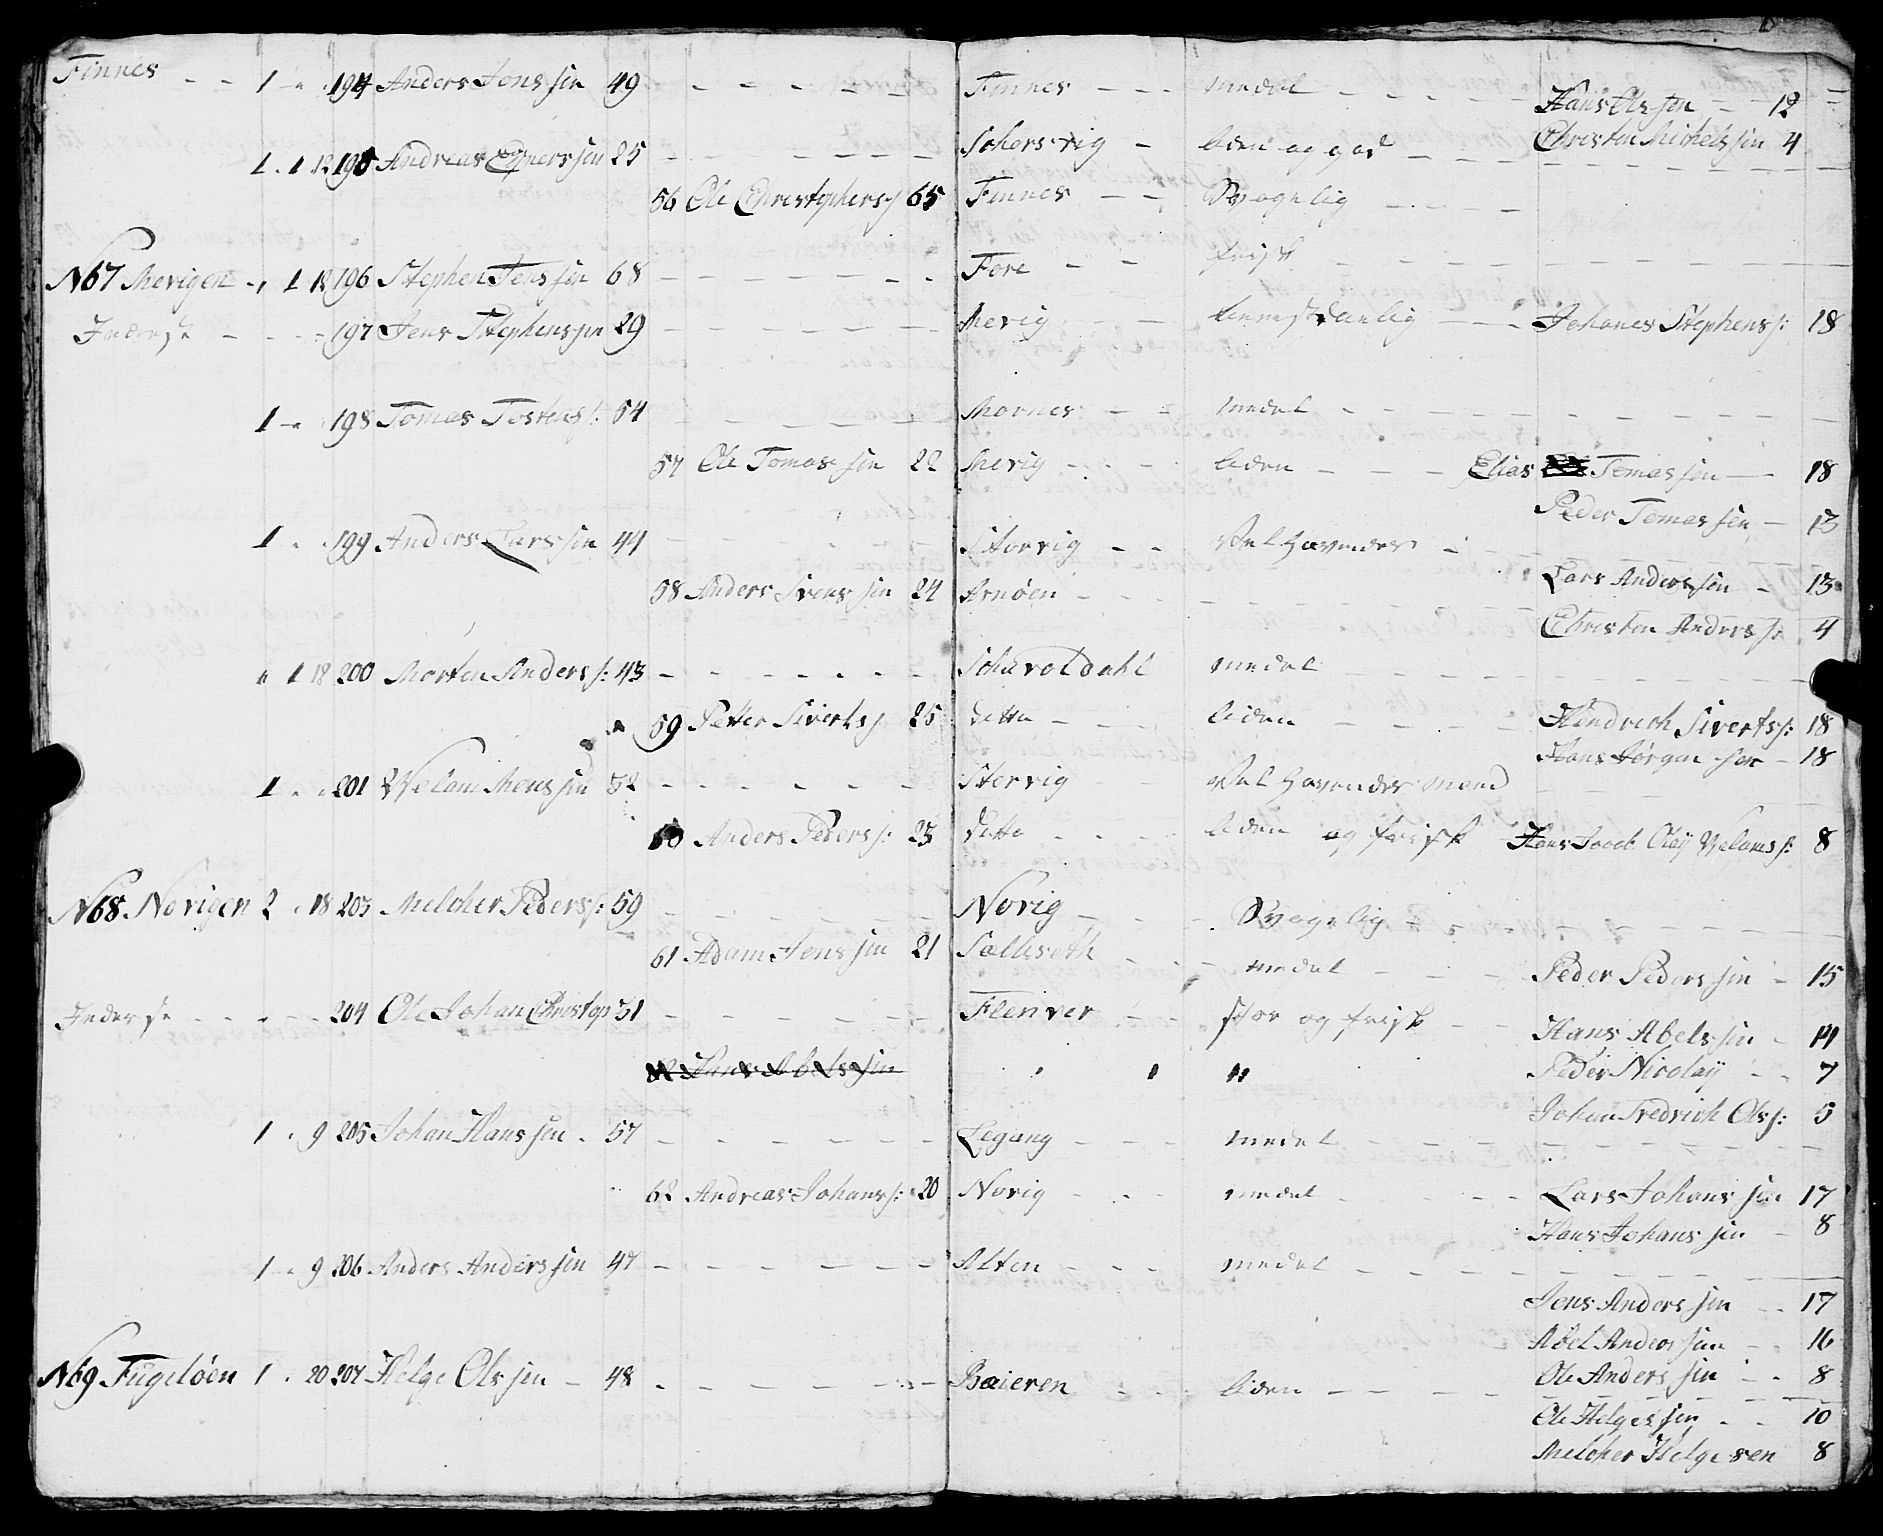 Finnes - - 1 - " 194 Anders Jens sen 49 - - - Finnes - - - medel - - - Hans Ols sen - - 12
1 . 1 12 195 Andreas Ejners sen 25 - - - Schersvig - liden og god - - - Christen Michels sen 4
56 Ole Christophers: 65 Finnes - - Svagelig - - -
N67 Mevigen - , 1 12 196 Stephen Jens sen 68 - - - Fore - - frisk - - -
Inderste - - - 197 Jens Stephens sen 29 - - - Mevig - - Johanes Stephens: 18
1 - " 198 Tomas Tostens: 54 - - - Mornes - - medel - - -
57 Ole Tomas sen 22 Mevig - - - liden - - - Elias Tomas sen - 18
Peder Tomas sen - 13
1 . . 199 Anders Lars sen 44 - - - Storvig - - Velhavender - - -
58 Anders Ivers sen 24 Arnøen - - - Lars Anders sen - 13
Christen Anders: 4
" 1 18 200 Morten Anders: 43 - - - Scharoldahl medel - - -
59 Petter Siverts: 25 ditto - - - liden - - - Hendrich Siverts: 18
Hans Jørgen sen - 18
1 . . 201 Velom Mons sen 52 - - - Storvig - - Velhavender mand
60 Anders Peders: 25 ditto - - - liden og frisk Hans Jacob Olaÿ Veloms: 8
N68. Norigen 2 . 18 203 Melcher Peders: 59 - - - Norig - - - Svagelig - - -
61 Adam Jens sen 21 Sælleseth - - - medel - - - Peder Peders sen - 15
Inderste - - - 204 Ole Johan Christop 31 - - - Flenver - - stor og frisk - - Hans Abels sen - 14
" " " Peder Nicolaÿ - - 7
Johan Fredrich Ols: 5
1 . 9 205 Johan Hans sen . 57 - - - Legang - - - medel - - -
62 Andreas Johans: 20 Norig - - - medel - - - Lars Johans sen 17
Hans Johans sen - 8
1 - 9 206 Anders Anders sen 47 - - - Alten - - - medel - - -
Jens Anders sen - - 17
Abel Anders sen - - 16
N69 Fugeløen 1 . 20 207 Helge Ols sen - 48 - - - Baieren - - - liden - - - Ole Anders sen - - 8
Ole Helges sen - - 10
Melcher Helgesen 8